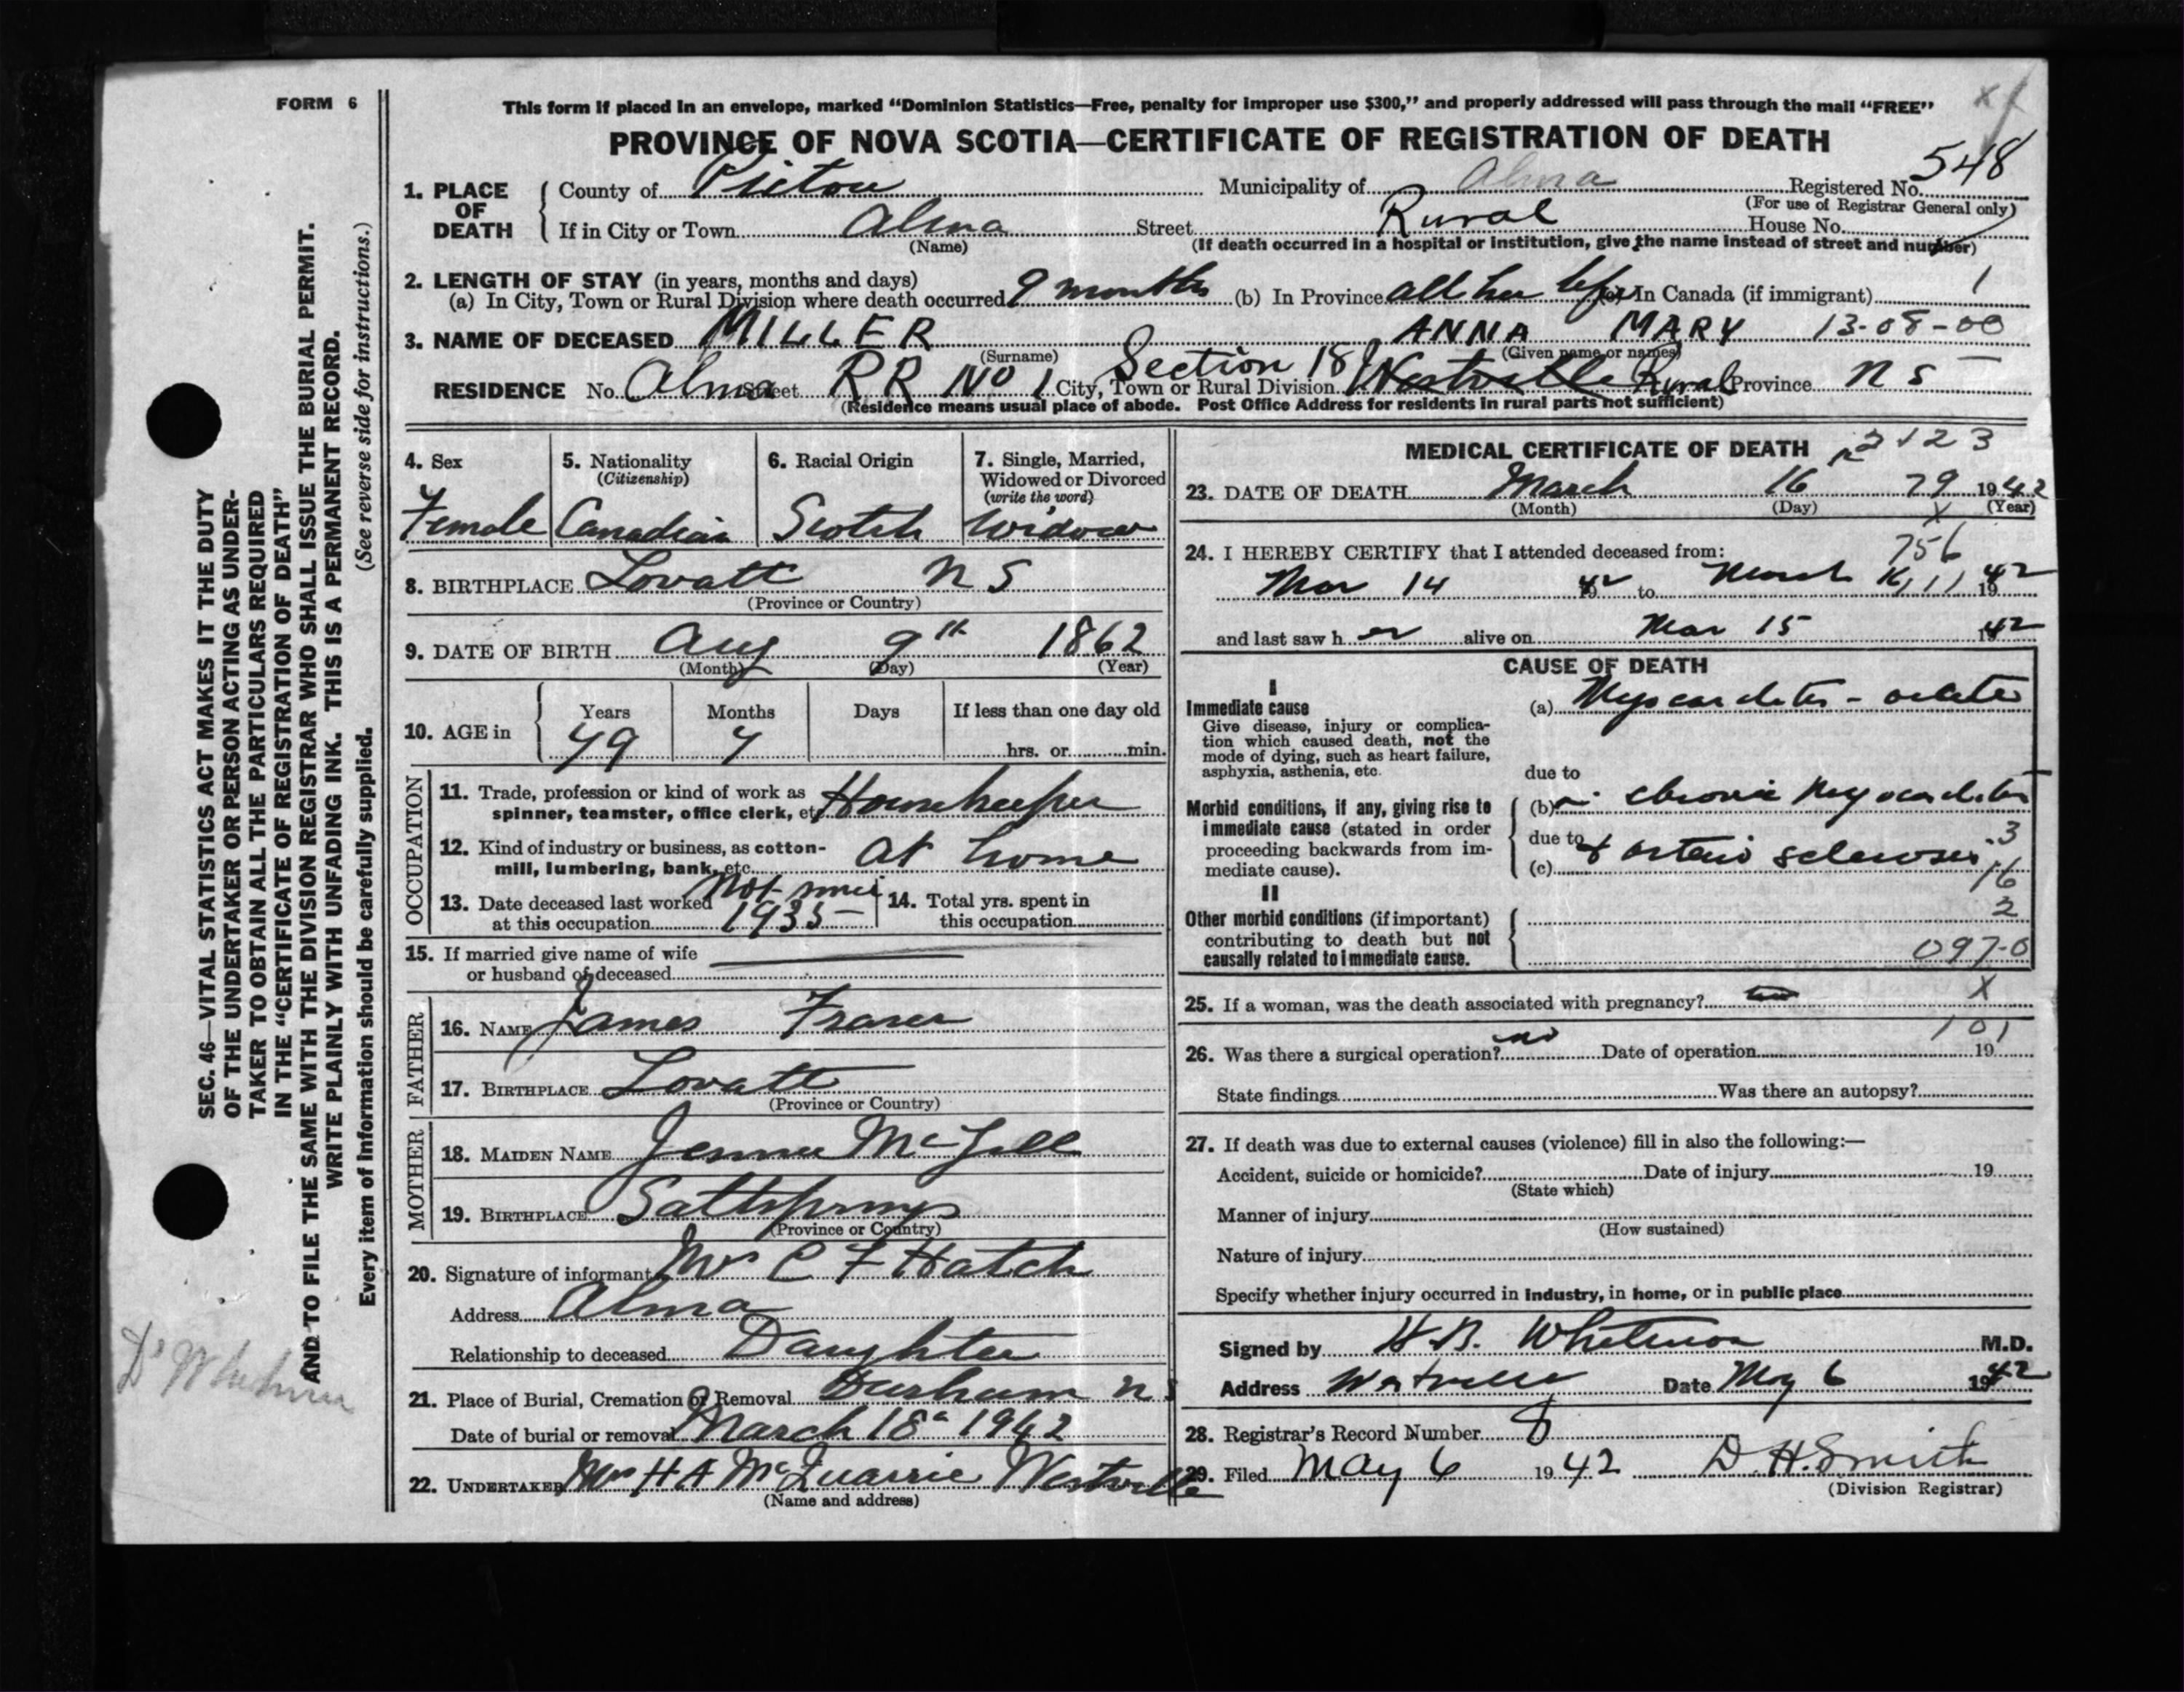 FORM 6
This form if placed in an envelope, marked “Dominion Statistics—Free, penalty for improper use $300,” and properly addressed will pass through the mail “FREE”
PROVINCE OF NOVA SCOTIA—CERTIFICATE OF REGISTRATION OF DEATH
1. PLACE OF DEATH
County of Pictou Municipality of Alma Registered No. 548
(For use of Registrar General only)
If in City or Town Alma Street Rural House No.
(Name) (If death occurred in a hospital or institution, give the name instead of street and number)
2. LENGTH OF STAY (in years, months and days)
(a) In City, Town or Rural Division where death occurred 9 months (b) In Province all her life (c) In Canada (if immigrant) 1
3. NAME OF DECEASED MILLER ANNA MARY 13-08-00
(Surname) (Given name or names)
Section 18
RESIDENCE No. Alma Street RR No 1 City, Town or Rural Division Westville Rural Province N S
(Residence means usual place of abode. Post Office Address for residents in rural parts not sufficient)
4. Sex
Female
5. Nationality
(Citizenship)
Canadian
6. Racial Origin
Scotch
7. Single, Married, Widowed or Divorced
(write the word)
Widow
8. BIRTHPLACE Lovatt N S
(Province or Country)
9. DATE OF BIRTH Aug 9th 1862
(Month) (Day) (Year)
10. AGE in
Years Months Days If less than one day old
79 7 hrs. or min.
OCCUPATION
11. Trade, profession or kind of work as spinner, teamster, office clerk, etc. Housekeeper
12. Kind of industry or business, as cotton-mill, lumbering, bank, etc. At home
13. Date deceased last worked at this occupation Not since 1935 —
14. Total yrs. spent in this occupation
15. If married give name of wife or husband of deceased
FATHER
16. NAME James Fraser
17. BIRTHPLACE Lovatt
(Province or Country)
MOTHER
18. MAIDEN NAME Jennie McGill
19. BIRTHPLACE Saltsprings
(Province or Country)
20. Signature of informant Mrs C F Hatch
Address Alma
Relationship to deceased Daughter
21. Place of Burial, Cremation or Removal Durham N S
Date of burial or removal March 18 1942
22. UNDERTAKER Mrs H A McQuarrie Westville
(Name and address)
MEDICAL CERTIFICATE OF DEATH
2123
23. DATE OF DEATH March 16 79 1942
(Month) (Day) (Year)
X
24. I HEREBY CERTIFY that I attended deceased from:
756
Mar 14 42 to March 1942
and last saw her alive on Mar 15 1942
CAUSE OF DEATH
I
Immediate cause
Give disease, injury or complication which caused death, not the mode of dying, such as heart failure, asphyxia, asthenia, etc.
(a) Myocarditis - acute
due to
Morbid conditions, if any, giving rise to immediate cause (stated in order proceeding backwards from immediate cause).
(b) chronic Myocarditis
due to
(c) & arterio sclerosis
3
16
II
Other morbid conditions (if important) contributing to death but not causally related to immediate cause.
2
097-0
25. If a woman, was the death associated with pregnancy? no X
101
26. Was there a surgical operation? no Date of operation 19
State findings Was there an autopsy?
27. If death was due to external causes (violence) fill in also the following:—
Accident, suicide or homicide? Date of injury 19
(State which)
Manner of injury
(How sustained)
Nature of injury
Specify whether injury occurred in industry, in home, or in public place
Signed by H.B. Whitman M.D.
Address Westville Date May 6 1942
28. Registrar's Record Number 8
29. Filed May 6 1942 D.H. Smith
(Division Registrar)
SEC. 46—VITAL STATISTICS ACT MAKES IT THE DUTY
OF THE UNDERTAKER OR PERSON ACTING AS UNDER-
TAKER TO OBTAIN ALL THE PARTICULARS REQUIRED
IN THE “CERTIFICATE OF REGISTRATION OF DEATH”
AND TO FILE THE SAME WITH THE DIVISION REGISTRAR WHO SHALL ISSUE THE BURIAL PERMIT.
WRITE PLAINLY WITH UNFADING INK. THIS IS A PERMANENT RECORD.
Every item of information should be carefully supplied. (See reverse side for instructions.)
Dr Whitman